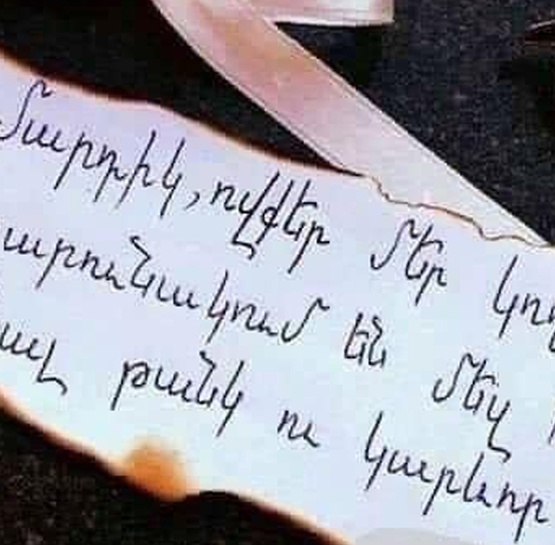 Մարդիկ, ովքեր մեր կող
արունակում են մեզ հ
ալ թանկ ու կարևոր